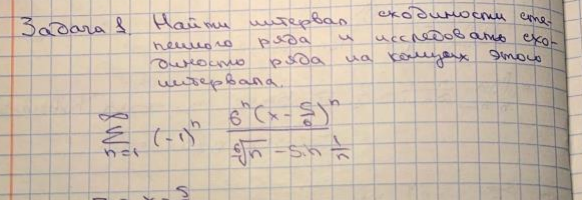 Задача 1. Найти интервал сходимости сте-
пенного ряда и исследовать схо-
димость ряда на концах этого
интервала.
∞
∑ (-1)ⁿ 6ⁿ(x - 5/6)ⁿ / (⁶√n - sin 1/n)
n=1